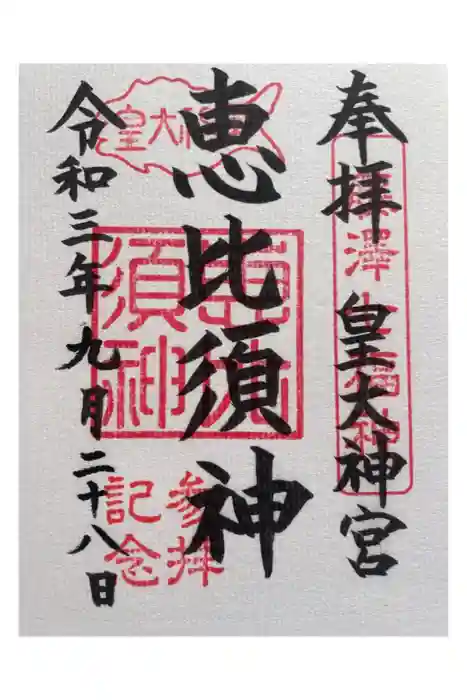 奉拝 皇大神宮
藤澤七福神
恵比須神
皇大神
恵比須神
参拝
記念
令和三年九月二十八日